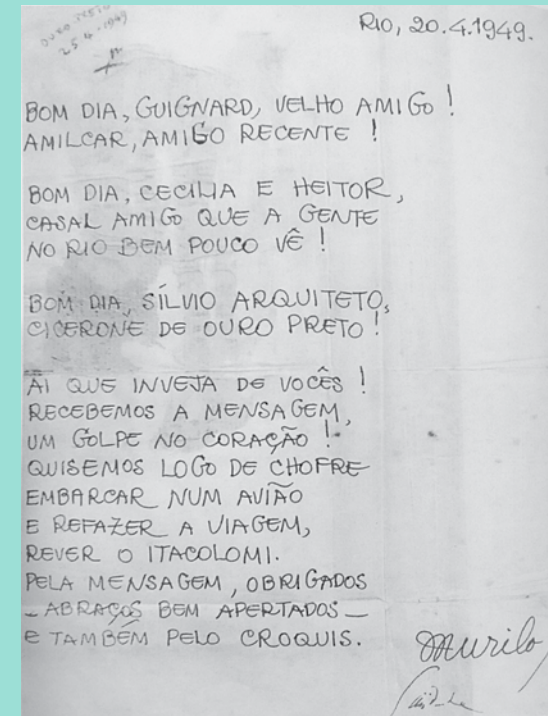 OURO PRETO
25.4.1949
RIO, 20.4.1949.
BOM DIA, GUIGNARD, VELHO AMIGO !
AMILCAR, AMIGO RECENTE !
BOM DIA, CECILIA E HEITOR,
CASAL AMIGO QUE A GENTE
NO RIO BEM POUCO VÊ !
BOM DIA, SÍLVIO ARQUITETO,
CICERONE DE OURO PRETO !
AI QUE INVEJA DE VOCÊS !
RECEBEMOS A MENSAGEM,
UM GOLPE NO CORAÇÃO !
QUISEMOS LOGO DE CHOFRE
EMBARCAR NUM AVIÃO
E REFAZER A VIAGEM,
REVER O ITACOLOMI.
PELA MENSAGEM, OBRIGADOS
— ABRAÇOS BEM APERTADOS —
E TAMBÉM PELO CROQUIS.
Murilo